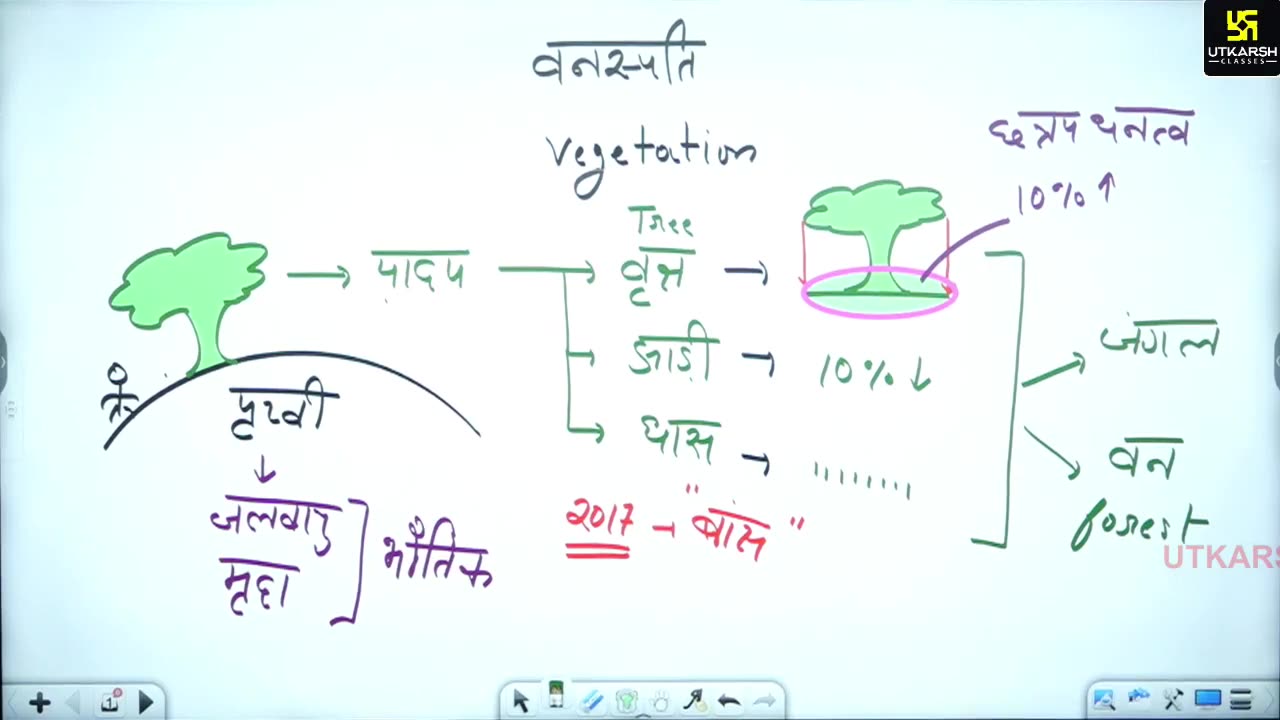 UTKARSH
CLASSES
वनस्पति
Vegetation
छत्रप घनत्व
10% ↑
Tree
पादप
वृक्ष
झाड़ी
10% ↓
घास
जंगल
वन
forest
पृथ्वी
जलवायु
मृदा
भौतिक
2017 → "बांस"
UTKARS
1